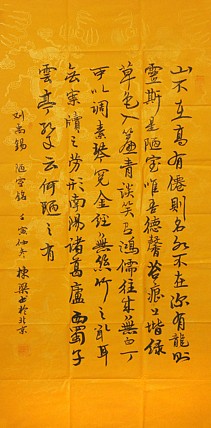 山不在高有僊則名水不在深有龍則
靈斯是陋室唯吾德馨苔痕上堦緑
草色入簾青談笑有鴻儒往來無白丁
可以調素琴閱金經無絲竹之亂耳
無案牘之勞形南陽諸葛廬西蜀子
雲亭孔子云何陋之有
刘禹錫 陋室銘 壬寅仲冬 棟梁书於北京